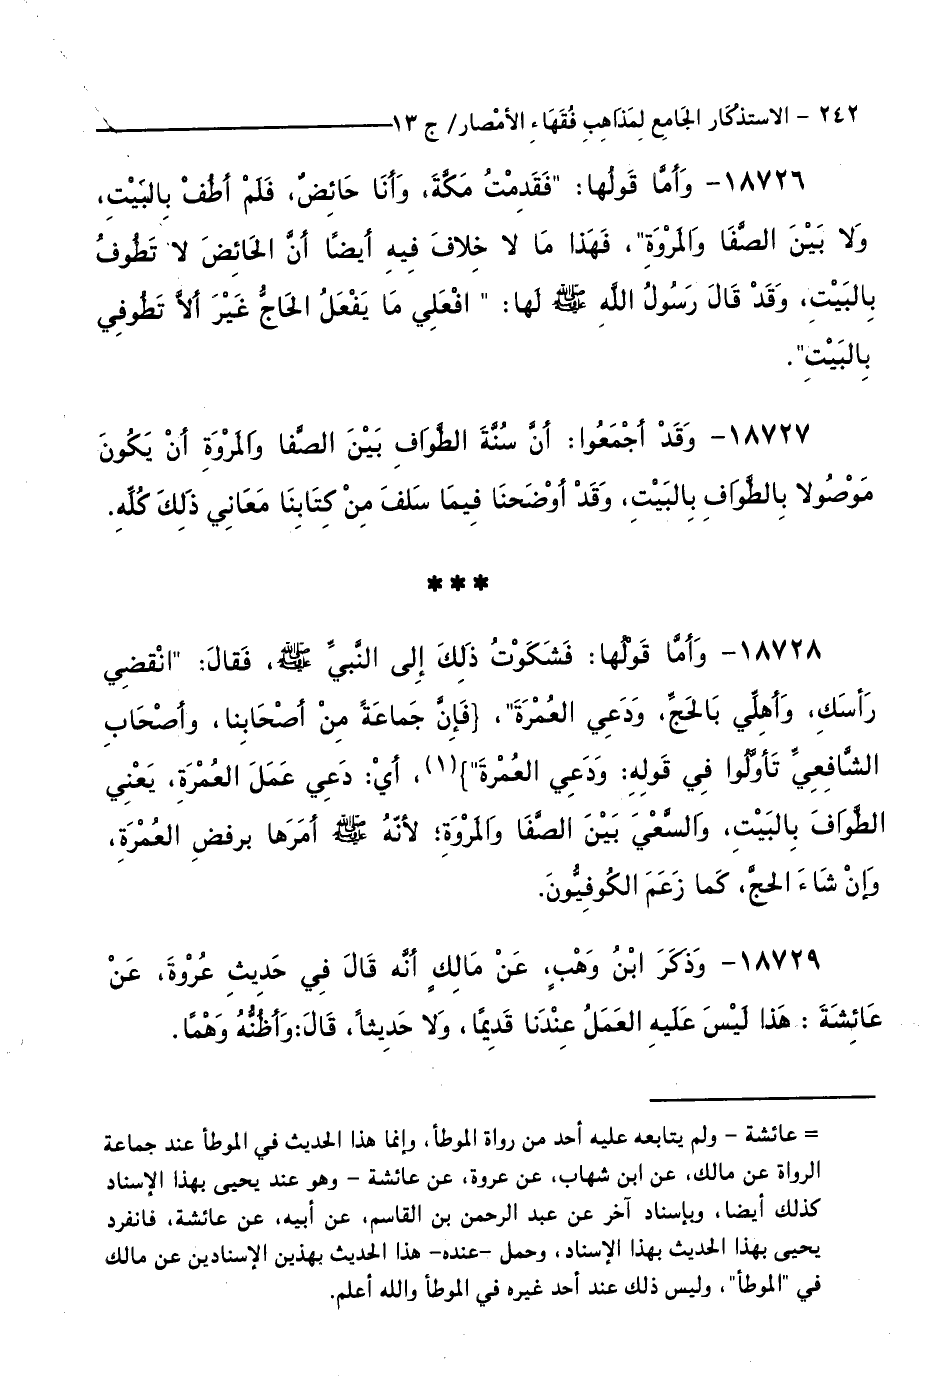 ٢٤٢ - الاستذْكَار الجَامِع لِمَذَاهِبِ فُقَهَاءِ الأمْصَار/ ج ١٣
١٨٧٢٦- وَأَمَّا قَولُها: "فَقَدِمْتُ مَكَّةَ، وَأَنَا حَائِضٌ، فَلَمْ أطُفْ بِالبَيْتِ،
وَلا بَيْنَ الصَّفَا وَالمَرْوَةِ"، فَهَذَا مَا لا خِلافَ فِيهِ أيضًا أنَّ الحَائِضَ لا تَطُوفُ
بِالبَيْتِ، وَقَدْ قَالَ رَسُولُ اللَّهِ ﷺ لَها: " افْعَلِي مَا يَفْعَلُ الحَاجُّ غَيْرَ ألاَّ تَطُوفِي
بِالبَيْتِ".
١٨٧٢٧- وَقَدْ أجْمَعُوا: أنَّ سُنَّةَ الطَّوَافِ بَيْنَ الصَّفا وَالمَرْوَةِ أنْ يَكُونَ
مَوْصُولا بِالطَّوَافِ بِالبَيْتِ، وَقَدْ أوْضَحنَا فِيمَا سَلَفَ مِنْ كِتَابِنَا مَعَانِي ذلِكَ كُلّهِ.
***
١٨٧٢٨- وَأمَّا قَوْلُها: فَشَكَوْتُ ذَلِكَ إِلى النَّبيِّ ﷺ، فَقالَ: "انْقضِي
رَأسَكِ، وَأهِلِّي بَالحَجِّ، وَدَعِي العُمْرَةَ"، {فَإنَّ جَماعَةً مِنْ أصْحَابِنا، وأصْحَابِ
الشَّافِعِيِّ تَأوَّلُوا فِي قَولِهِ: وَدَعِي العُمْرةَ"}(١)، أيْ: دَعِي عَمَلَ العُمْرَةِ، يَعْنِي
الطَّوَافَ بِالبَيْتِ، وَالسَّعْيَ بَيْنَ الصَّفَا وَالمَرْوَةِ؛ لأنّهُ ﷺ أمَرَها بِرفضِ العُمْرَةِ،
وَإنْ شَاءَ الحجَّ، كَما زَعَمَ الكُوفِيُّونَ.
١٨٧٢٩- وَذَكَرَ ابْنُ وَهْبٍ، عَنْ مَالِكٍ أنَّه قَالَ فِي حَدِيثِ عُرْوَةَ، عَنْ
عَائِشَةَ : هَذا لَيْسَ عَلَيهِ العَمَلُ عِنْدَنَا قَدِيمًا، وَلا حَدِيثاً، قَالَ:وَأظنُّهُ وَهْمًا.
= عائشة - ولم يتابعه عليه أحد من رواة الموطأ، وإنما هذا الحديث في الموطأ عند جماعة
الرواة عن مالك، عن ابن شهاب، عن عروة، عن عائشة - وهو عند يحيى بهذا الإسناد
كذلك أيضا، وبإسناد آخر عن عبد الرحمن بن القاسم، عن أبيه، عن عائشة، فانفرد
يحيى بهذا الحديث بهذا الإسناد، وحمل -عنده- هذا الحديث بهذين الإسنادين عن مالك
في "الموطأ"، وليس ذلك عند أحد غيره في الموطأ والله أعلم.